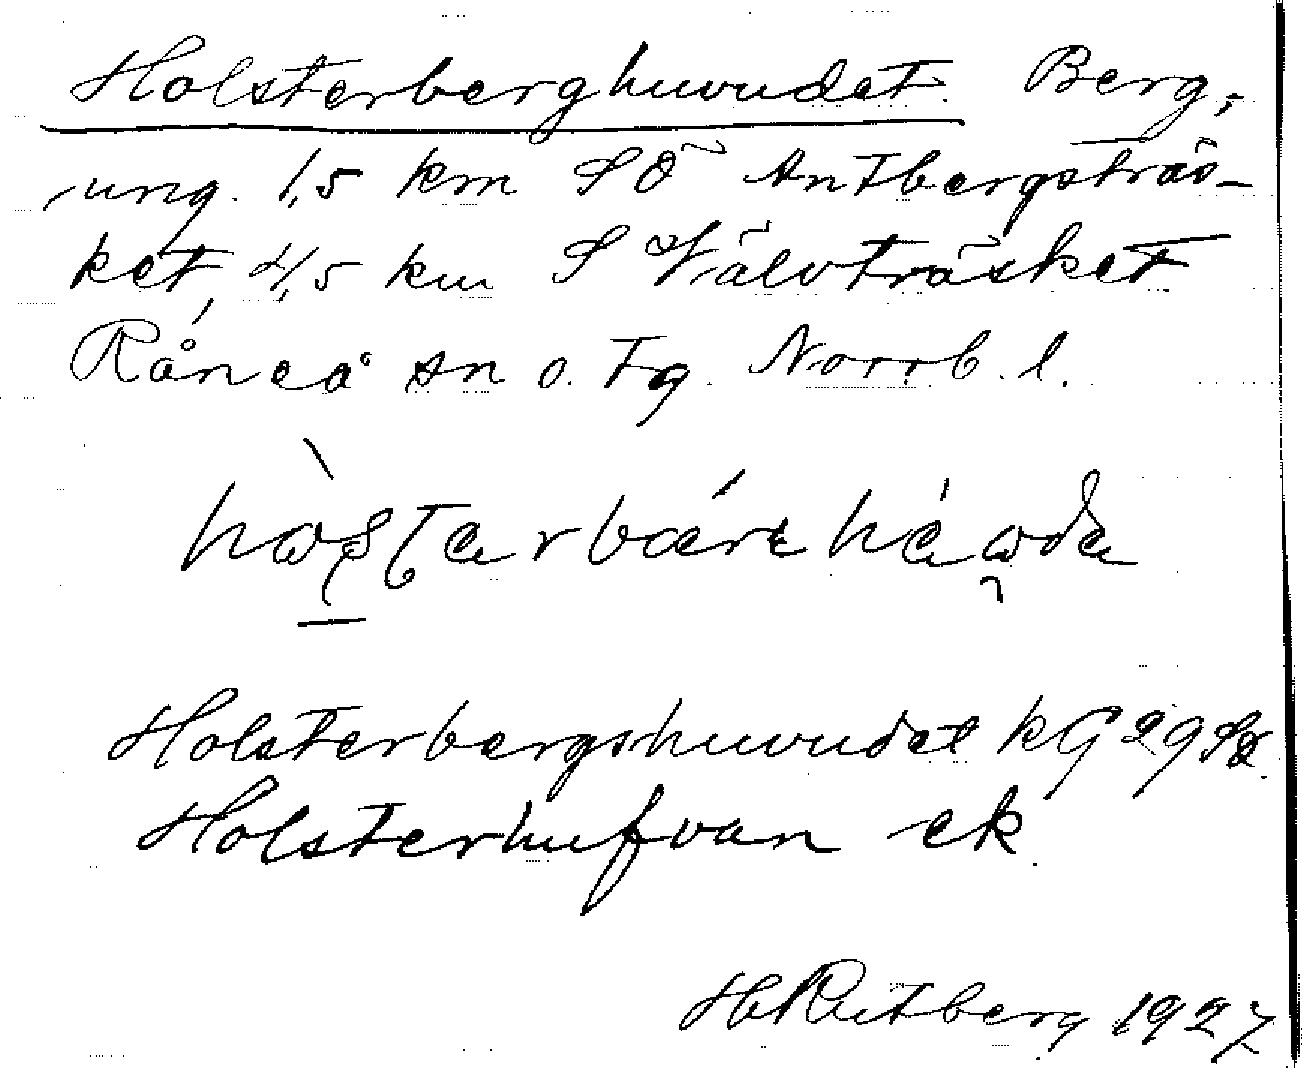 Holsterberghuvudet. Berg,
ung. 1,5 km SÖ Antbergsträs-
ket, 4,5 km S Välvträsket
Råneå sn o. tg. Norrb. l.
Holsterbergshuvudet kG 29
Holsterhufvan ek.
H Rutberg 1927